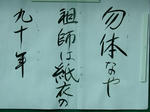 勿体なや
祖師は紙衣の
九十年